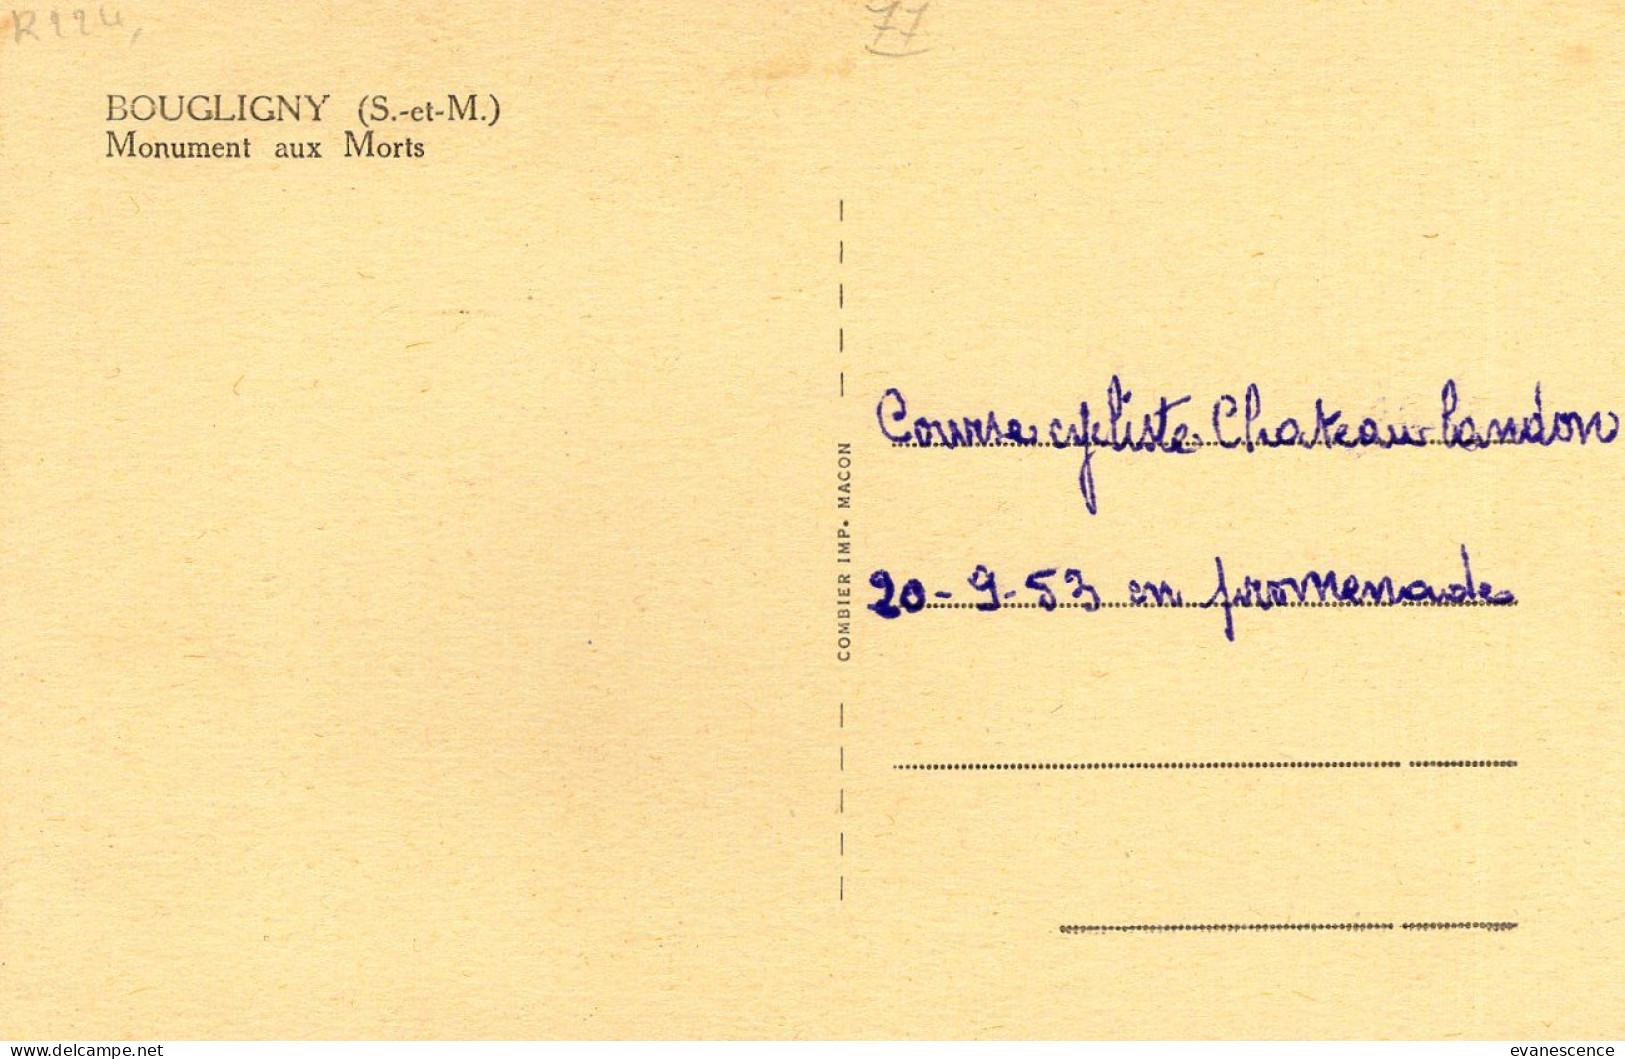 77
BOUGLIGNY (S.-et-M.)
Monument aux Morts
COMBIER IMP. MACON
Course cycliste Chateau-landon
20-9-53 en promenade
www.delcampe.net
evanescence